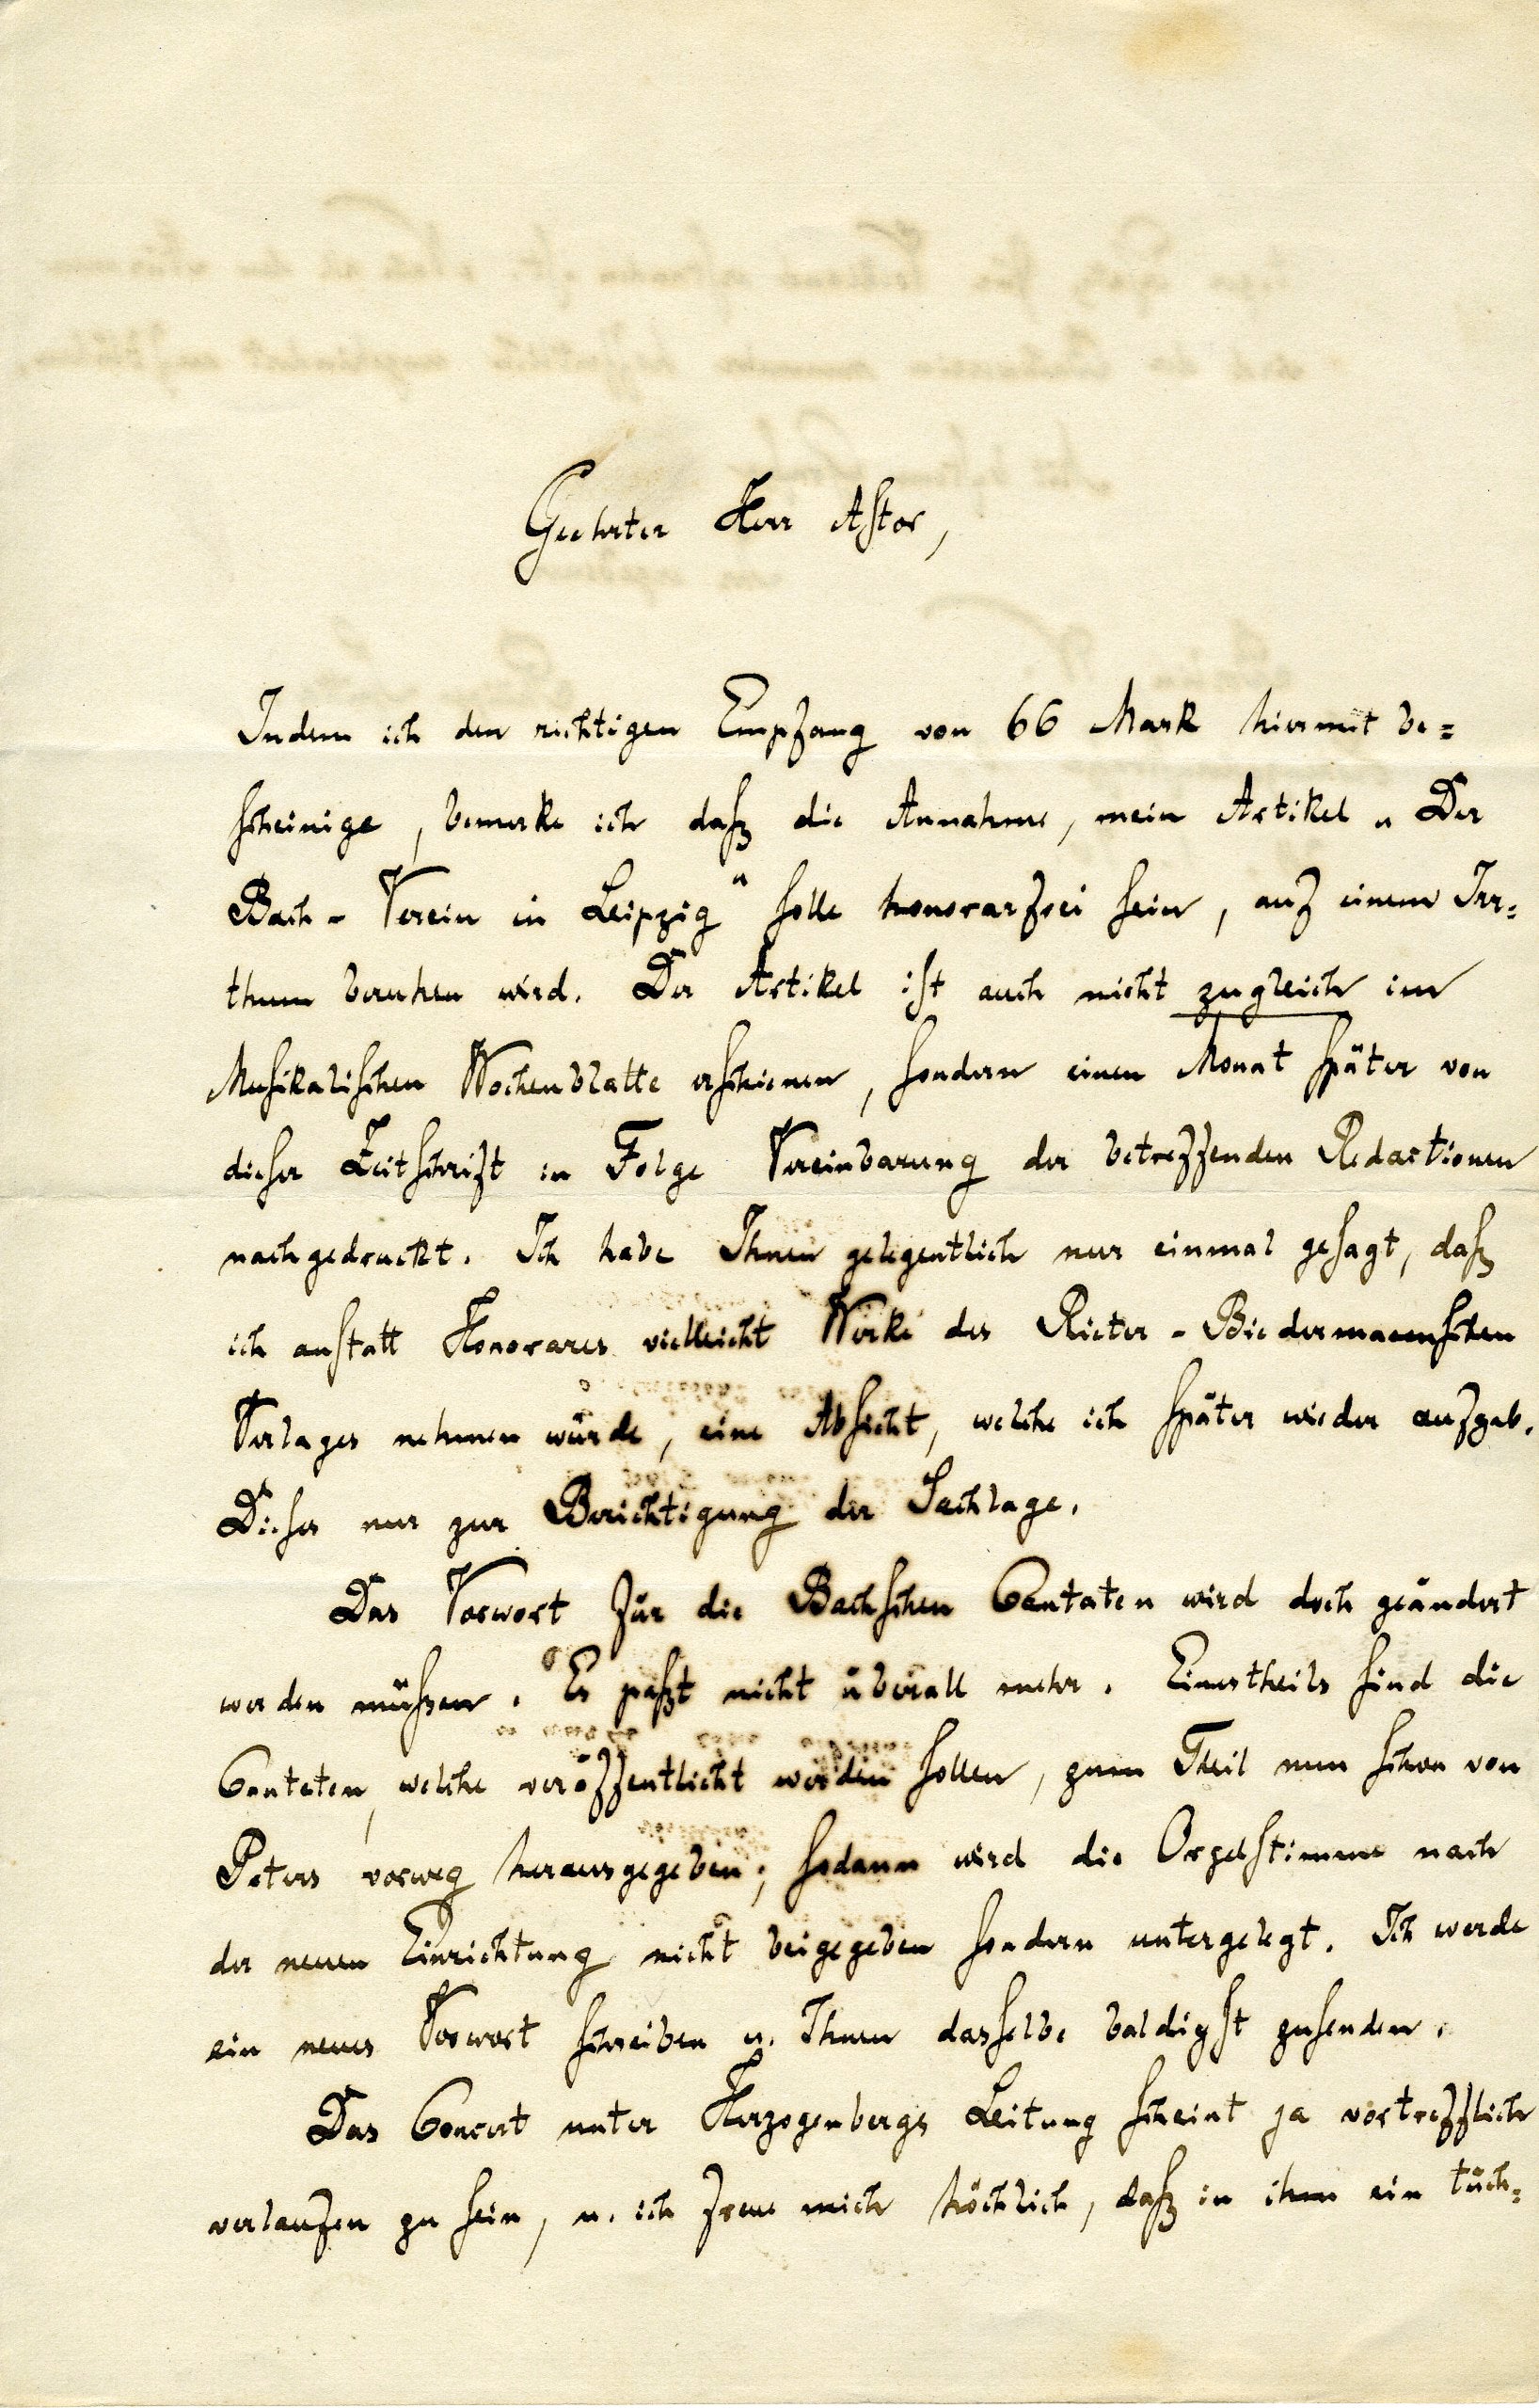 Geehrter Herr Astor,
Indem ich den richtigen Empfang von 66 Mark hiermit be=
scheinige, bemerke ich daß die Annahme, mein Artikel „Der
Bach-Verein in Leipzig“ solle honorarfrei sein, auf einem Irr=
thum beruhen wird. Der Artikel ist auch nicht zugleich im
Musikalischen Wochenblatte erschienen, sondern einen Monat später von
dieser Zeitschrift in Folge Vereinbarung der betreffenden Redactionen
nachgedruckt. Ich habe Ihnen gelegentlich nur einmal gesagt, daß
ich anstatt Honorares vielleicht Werke des Rieter-Biedermannschen
Verlages nehmen würde, eine Absicht, welche ich später wieder aufgab.
Dieses nur zur Berichtigung der Sachlage.
Das Vorwort für die Bachschen Cantaten wird doch geändert
werden müßen. Es paßt nicht überall mehr. Einestheils sind die
Cantaten, welche veröffentlicht werden sollen, zum Theil nun schon von
Peters vorweg herausgegeben; sodann wird die Orgelstimme nach
der neuen Einrichtung nicht beigegeben sondern untergelegt. Ich werde
ein neues Vorwort schreiben u. Ihnen dasselbe baldigst zusenden.
Das Concert unter Herzogenbergs Leitung scheint ja vortrefflich
verlaufen zu sein, u. ich freue mich höchlich, daß in ihm ein tüch=